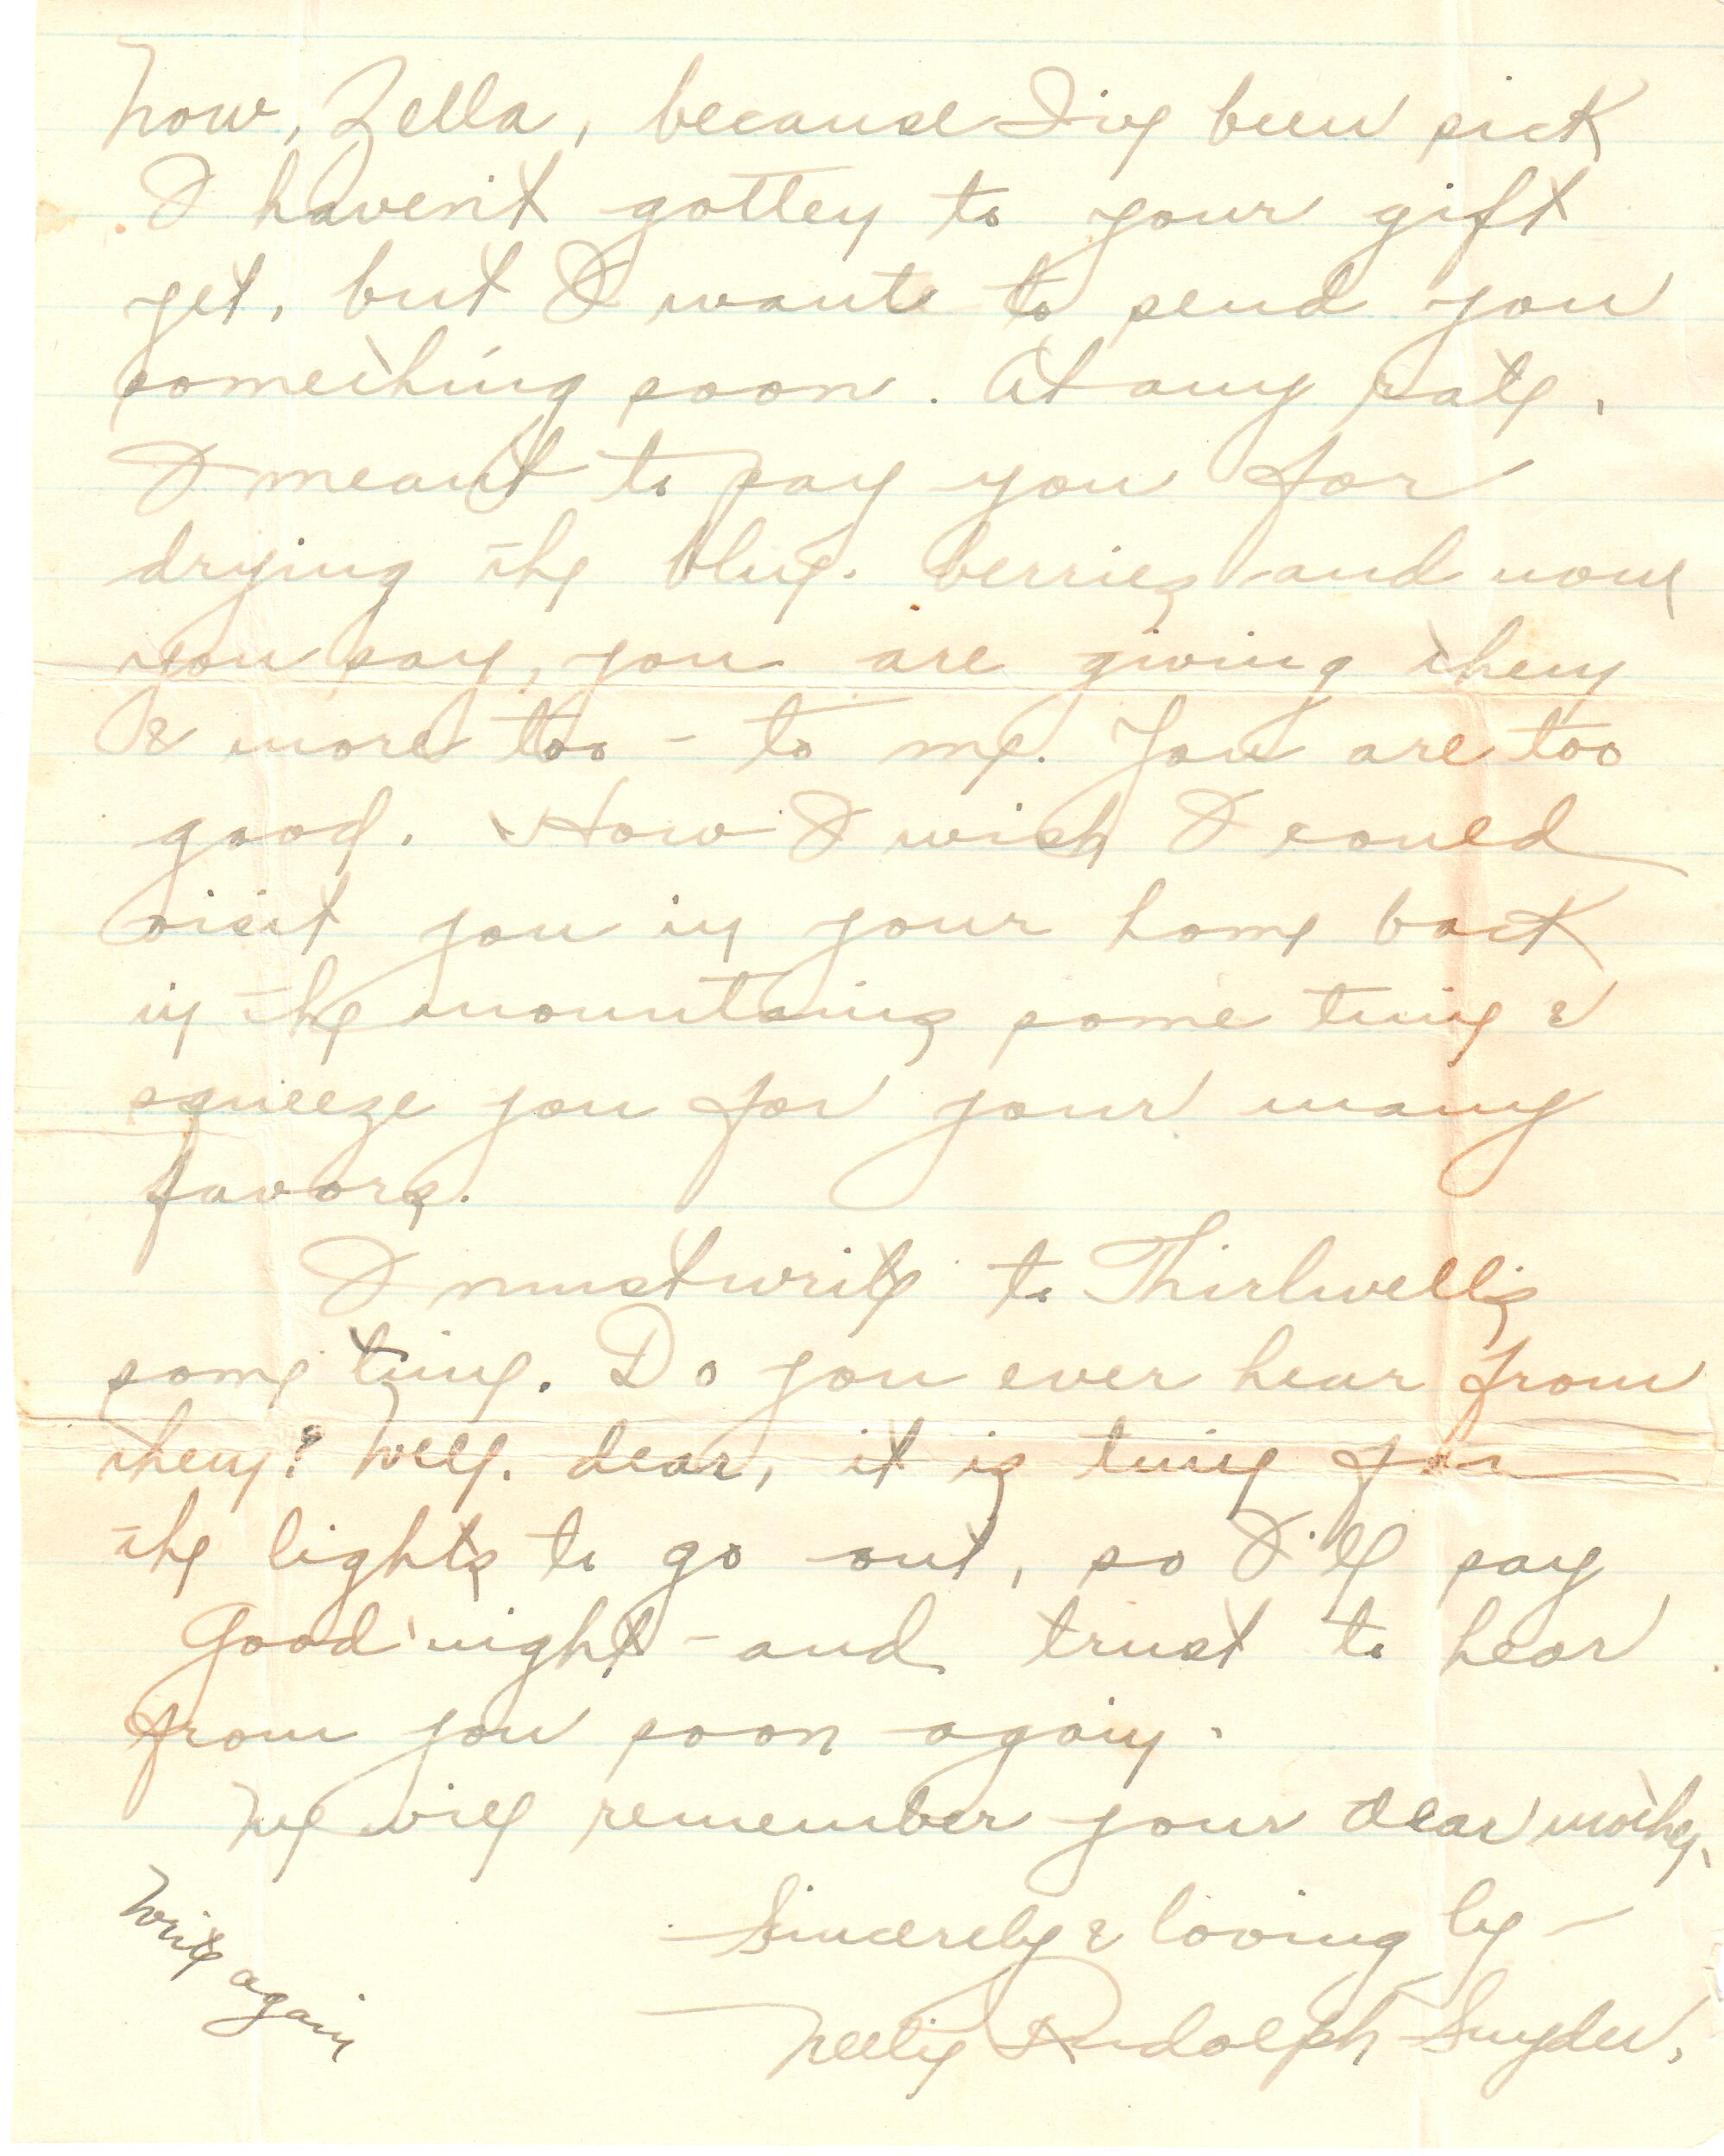 Now, Zella, because I've been sick
I haven't gotten to your gift
yet, but I want to send you
something soon. At any rate,
I meant to pay you for
drying the blue-berries and now
you say, you are giving them
& more too - to me. You are too
good. How I wish I could
visit you in your home back
in the mountains some time &
squeeze you for your many
favors.
I must write to Thirlwell's
some time. Do you ever hear from
them? Well, dear, it is time for
the lights to go out, so I'll say
Good night - and trust to hear
from you soon again.
We will remember your dear mother.
Sincerely & lovingly -
Write again
Nettie Rudolph Snyder.